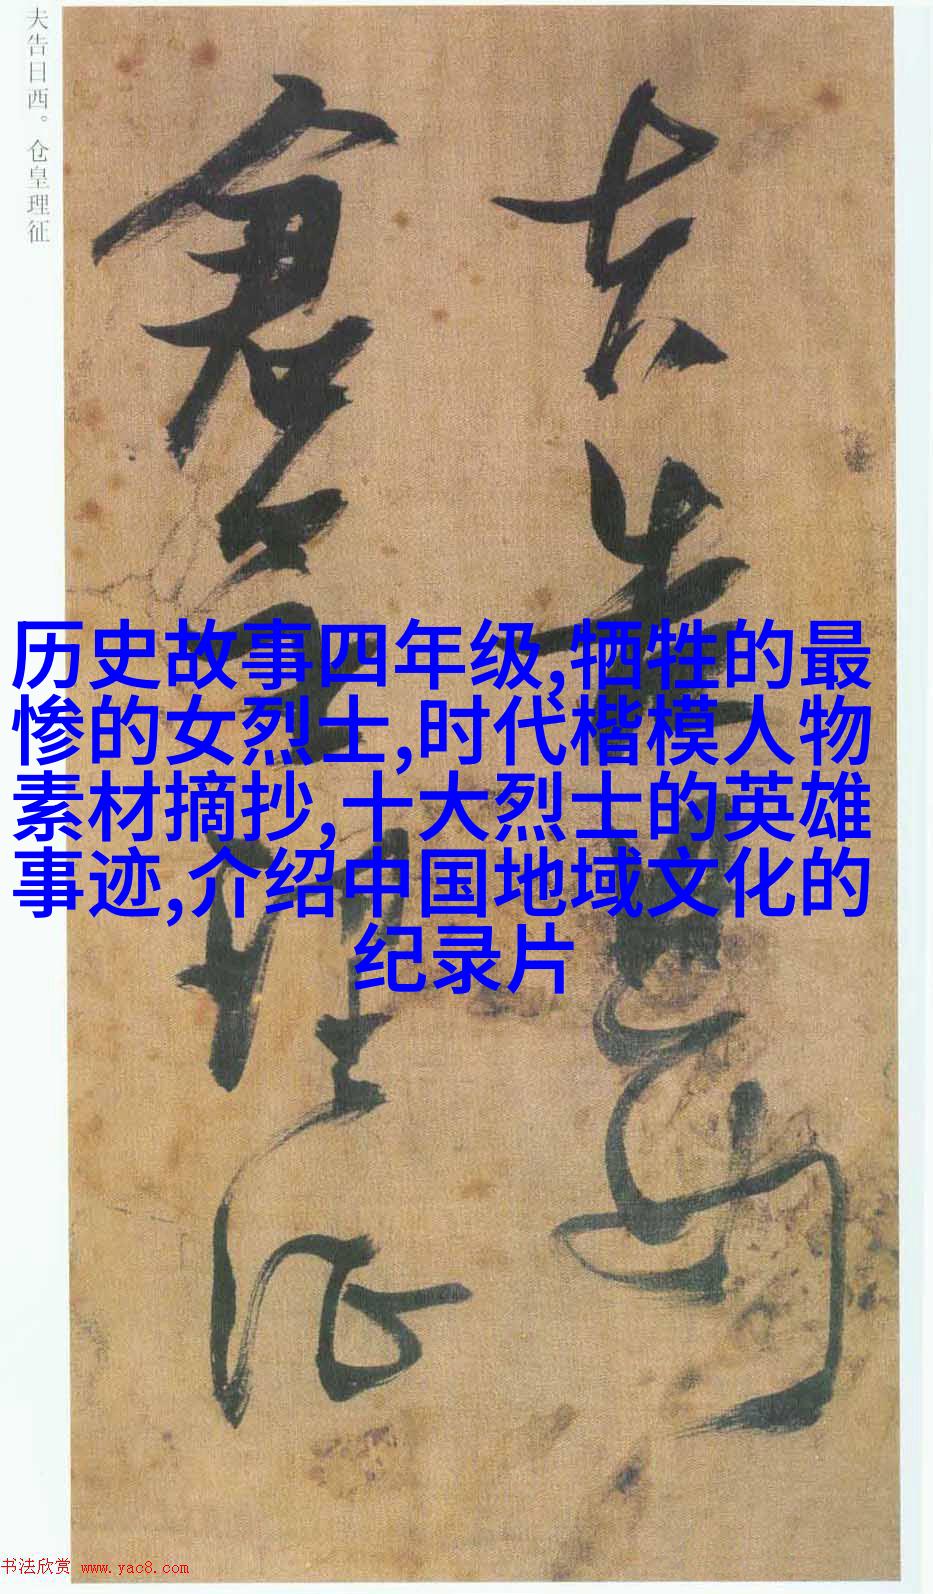 夫告日西。仓皇理征
夫告日西
仓皇理征
历史故事四年级,牺牲的最
惨的女烈士,时代楷模人物
素材摘抄,十大烈士的英雄
事迹,介绍中国地域文化的
纪录片
书法欣赏 www.yac8.com